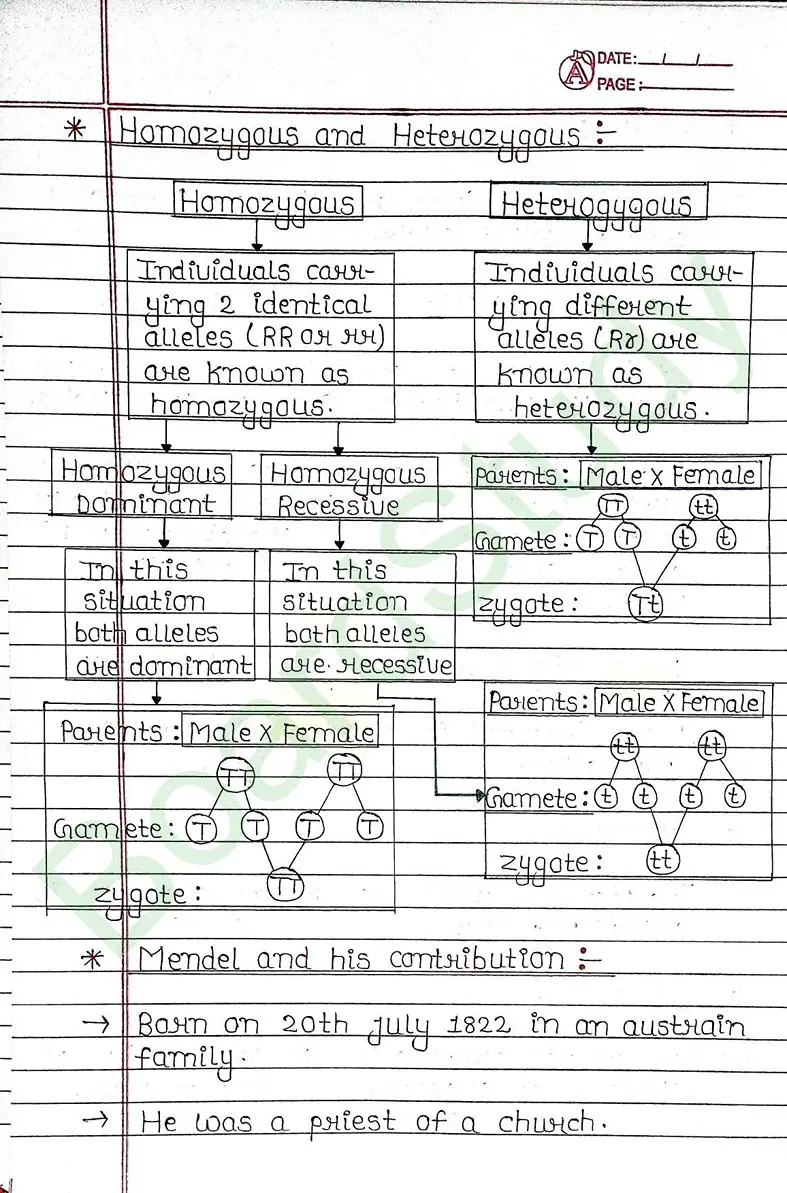 DATE: / /
PAGE:
* Homozygous and Heterozygous :-
Homozygous
Individuals carr-
ying 2 identical
alleles (RR or rr)
are known as
homozygous.
Heterogygous
Individuals carr-
ying different
alleles (Rr) are
known as
heterozygous.
Homozygous
Dominant
In this
situation
both alleles
are dominant
Homozygous
Recessive
In this
situation
both alleles
are recessive
Parents : Male X Female
TT tt
Gamete : T T t t
zygote : Tt
Parents : Male X Female
TT TT
Gamete : T T T T
zygote : TT
Parents : Male X Female
tt tt
Gamete : t t t t
zygote : tt
* Mendel and his contribution :-
→ Born on 20th july 1822 in an austrain
family.
→ He was a priest of a church.
BoardStudy